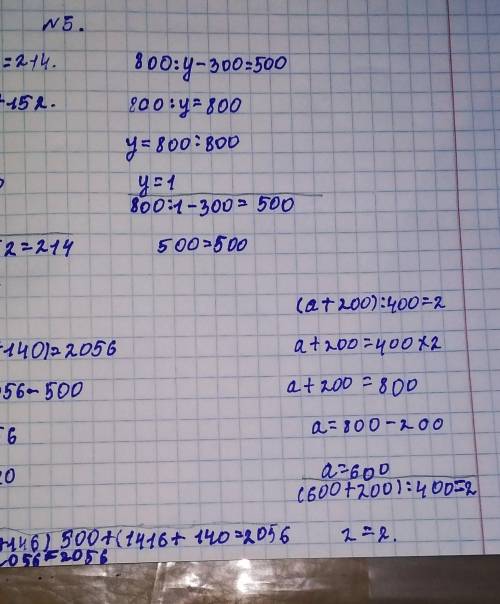 №5.
=214.
+152.
2=214
800:y-300=500
800:y=800
y=800:800
y=1
800:1-300=500
500=500
+140)=2056
056-500
6
0
+146) 500+(1416+140=2056
2056=2056
(a+200):400=2
a+200=400×2
a+200=800
a=800-200
a=600
(600+200):400=2
2=2.